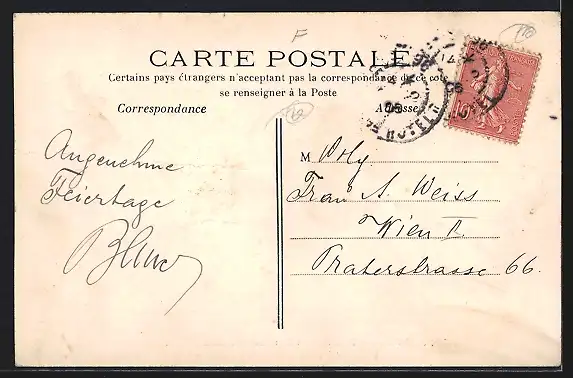 F
CARTE POSTALE
Certains pays étrangers n'acceptant pas la correspondance de ce coté
se renseigner à la Poste
Correspondance
Adresse
Angenehme
Feiertage
M
Frau A. Weiss
Wien I
Praterstrasse 66.